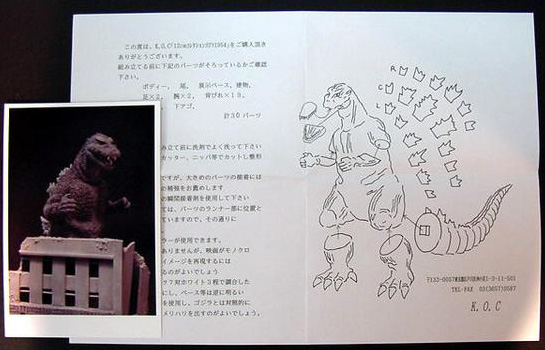 この度は、K.O.C「12cmコレクションゴジラ1954」をご購入頂き
ありがとうございます。
組み立てる前に下記のパーツがそろっているかご確認
下さい。
ボディー、 尾、 展示ベース、建物、
足×2、 腕×2、 背びれ×19、
下アゴ、
計30パーツ
み立て前に洗剤でよく洗って下さい
カッター、ニッパ等でカットし整形
ですが、大きめのパーツの接着には
の補強をお薦めします
の瞬間接着剤を使用して下さい
ては、パーツのランナー部に位置と
ていますので、その通りに
ラーが使用できます。
ありませんが、映画がモノクロ
イメージを再現するには
るのがよいでしょう
7対ホワイト3程で調合した
にし、ベース等は逆に明るい
を使用し、ゴジラとは対照的に
メリハリを出すのがよいでしょう。
R
C
L
TEL・FAX 03(3657)0587
K.O.C